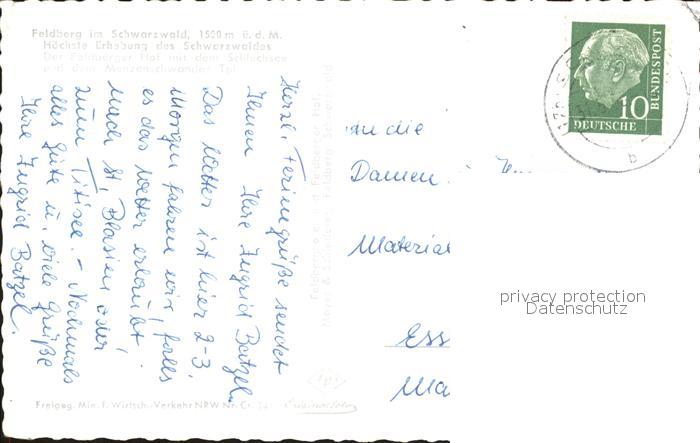 Feldberg im Schwarzwald, 1500 m ü. d. M.
Höchste Erhebung des Schwarzwaldes
Der Feldberger Hof mit dem Schluchsee
und dem Menzenschwander Tal
Herzl. Feriengrüße sendet
Ihnen Ihre Ingrid Batzel.
Das Wetter ist hier 2-3.
Morgen fahren wir, falls
es das Wetter erlaubt,
nach St. Blasien oder
zum Titisee. - Nochmals
alles Gute u. viele Grüße
Ihre Ingrid Batzel.
an die
Damen
Material
Ess
Ma
10
DEUTSCHE
BUNDESPOST
b
privacy protection
Datenschutz
Freigeg. Min. f. Wirtsch.-Verkehr NRW Nr. Cr.